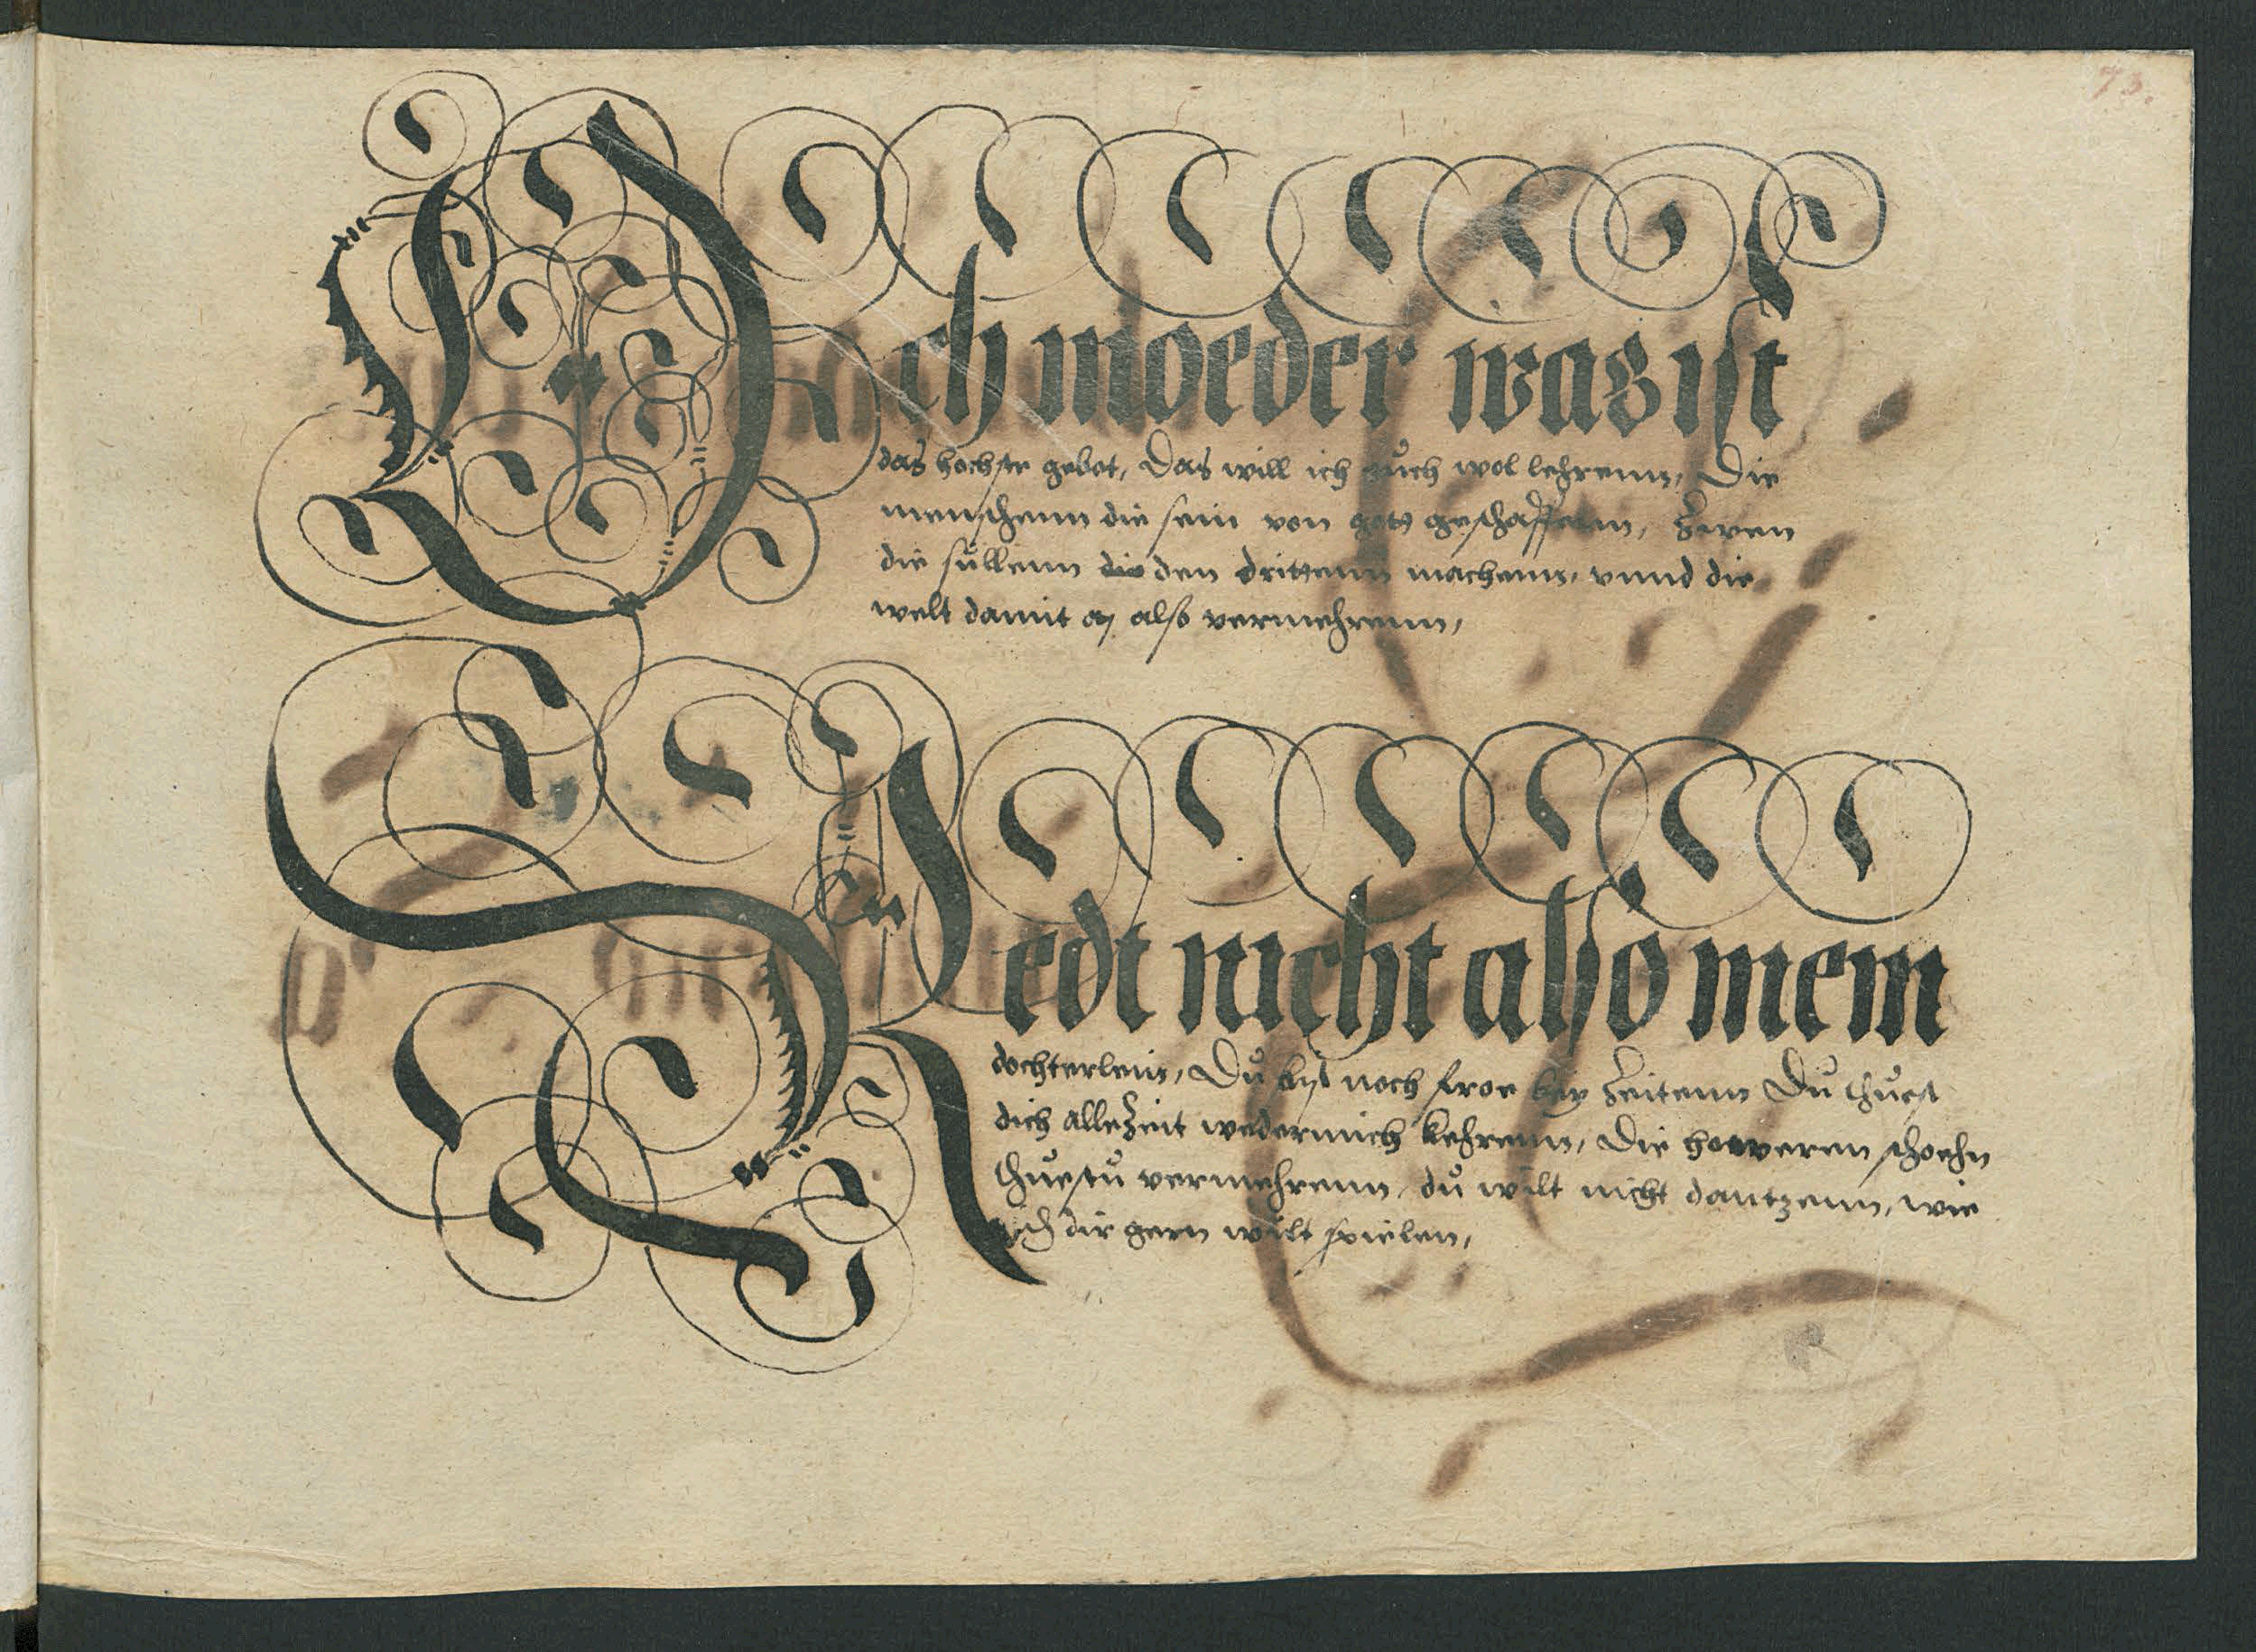 73.
Ach moeder was ist
das hochste gebot, Das will ich euch wol lehrenn, Die
menschenn die sein von gott geschaffenn, Zwen
die sullenn die den drittenn machenn, vnnd die
welt damit also vermehrenn,
Redt nicht also mein
dochterlein, Du bist noch froe bey Zeitenn Du thuest
dich alleZeit wedermich kehrenn, Die hoeveren schoehn
thuestu vermehrenn, du wilt nicht dantzenn, wie
ich dir gern wilt spielen,